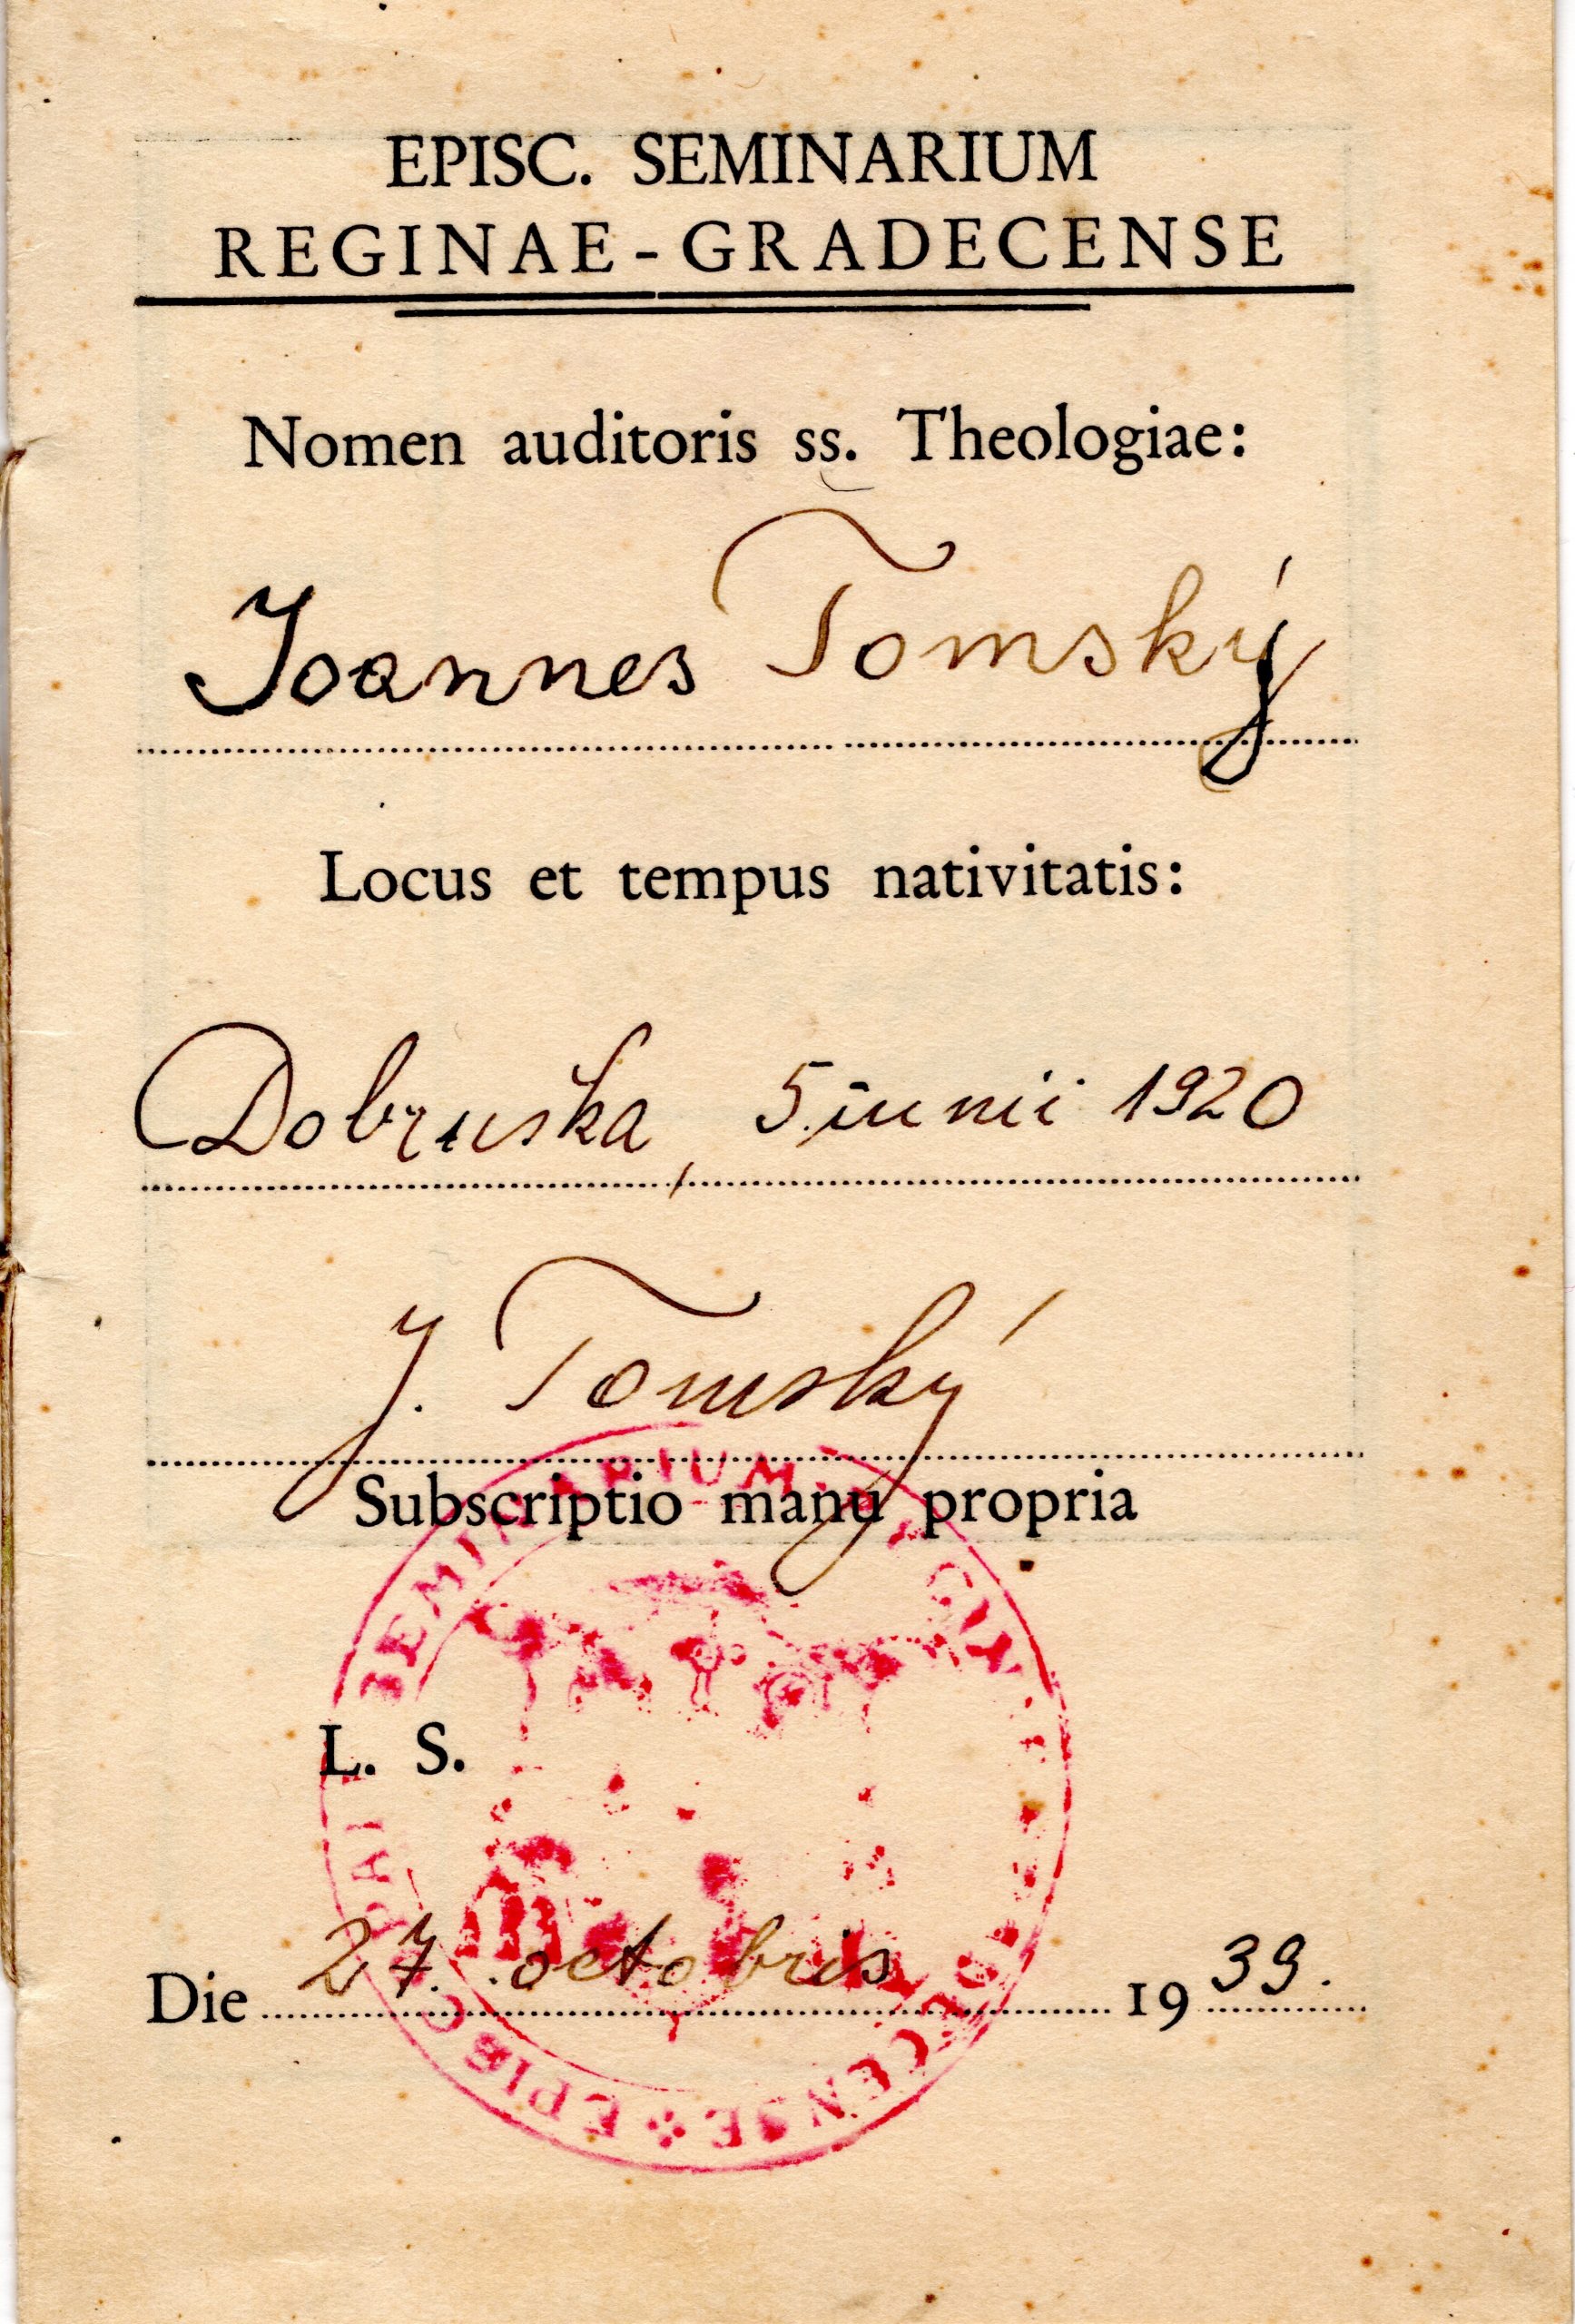 EPISC. SEMINARIUM
REGINAE-GRADECENSE
Nomen auditoris ss. Theologiae:
Joannes Tomský
Locus et tempus nativitatis:
Dobruška, 5. iunii 1920
J. Tomský
Subscriptio manu propria
L. S.
Die 27. octobris 1939.